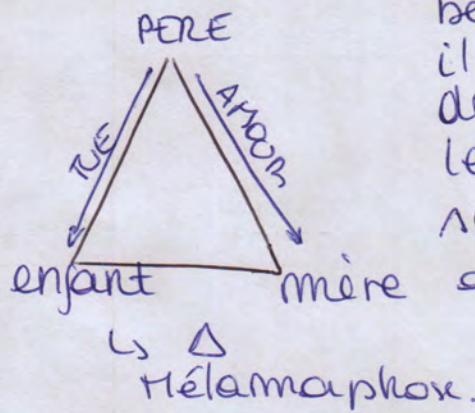 PERE
TUE
AMOUR
enfant
mère
↳ Δ
Métamorphose.
il